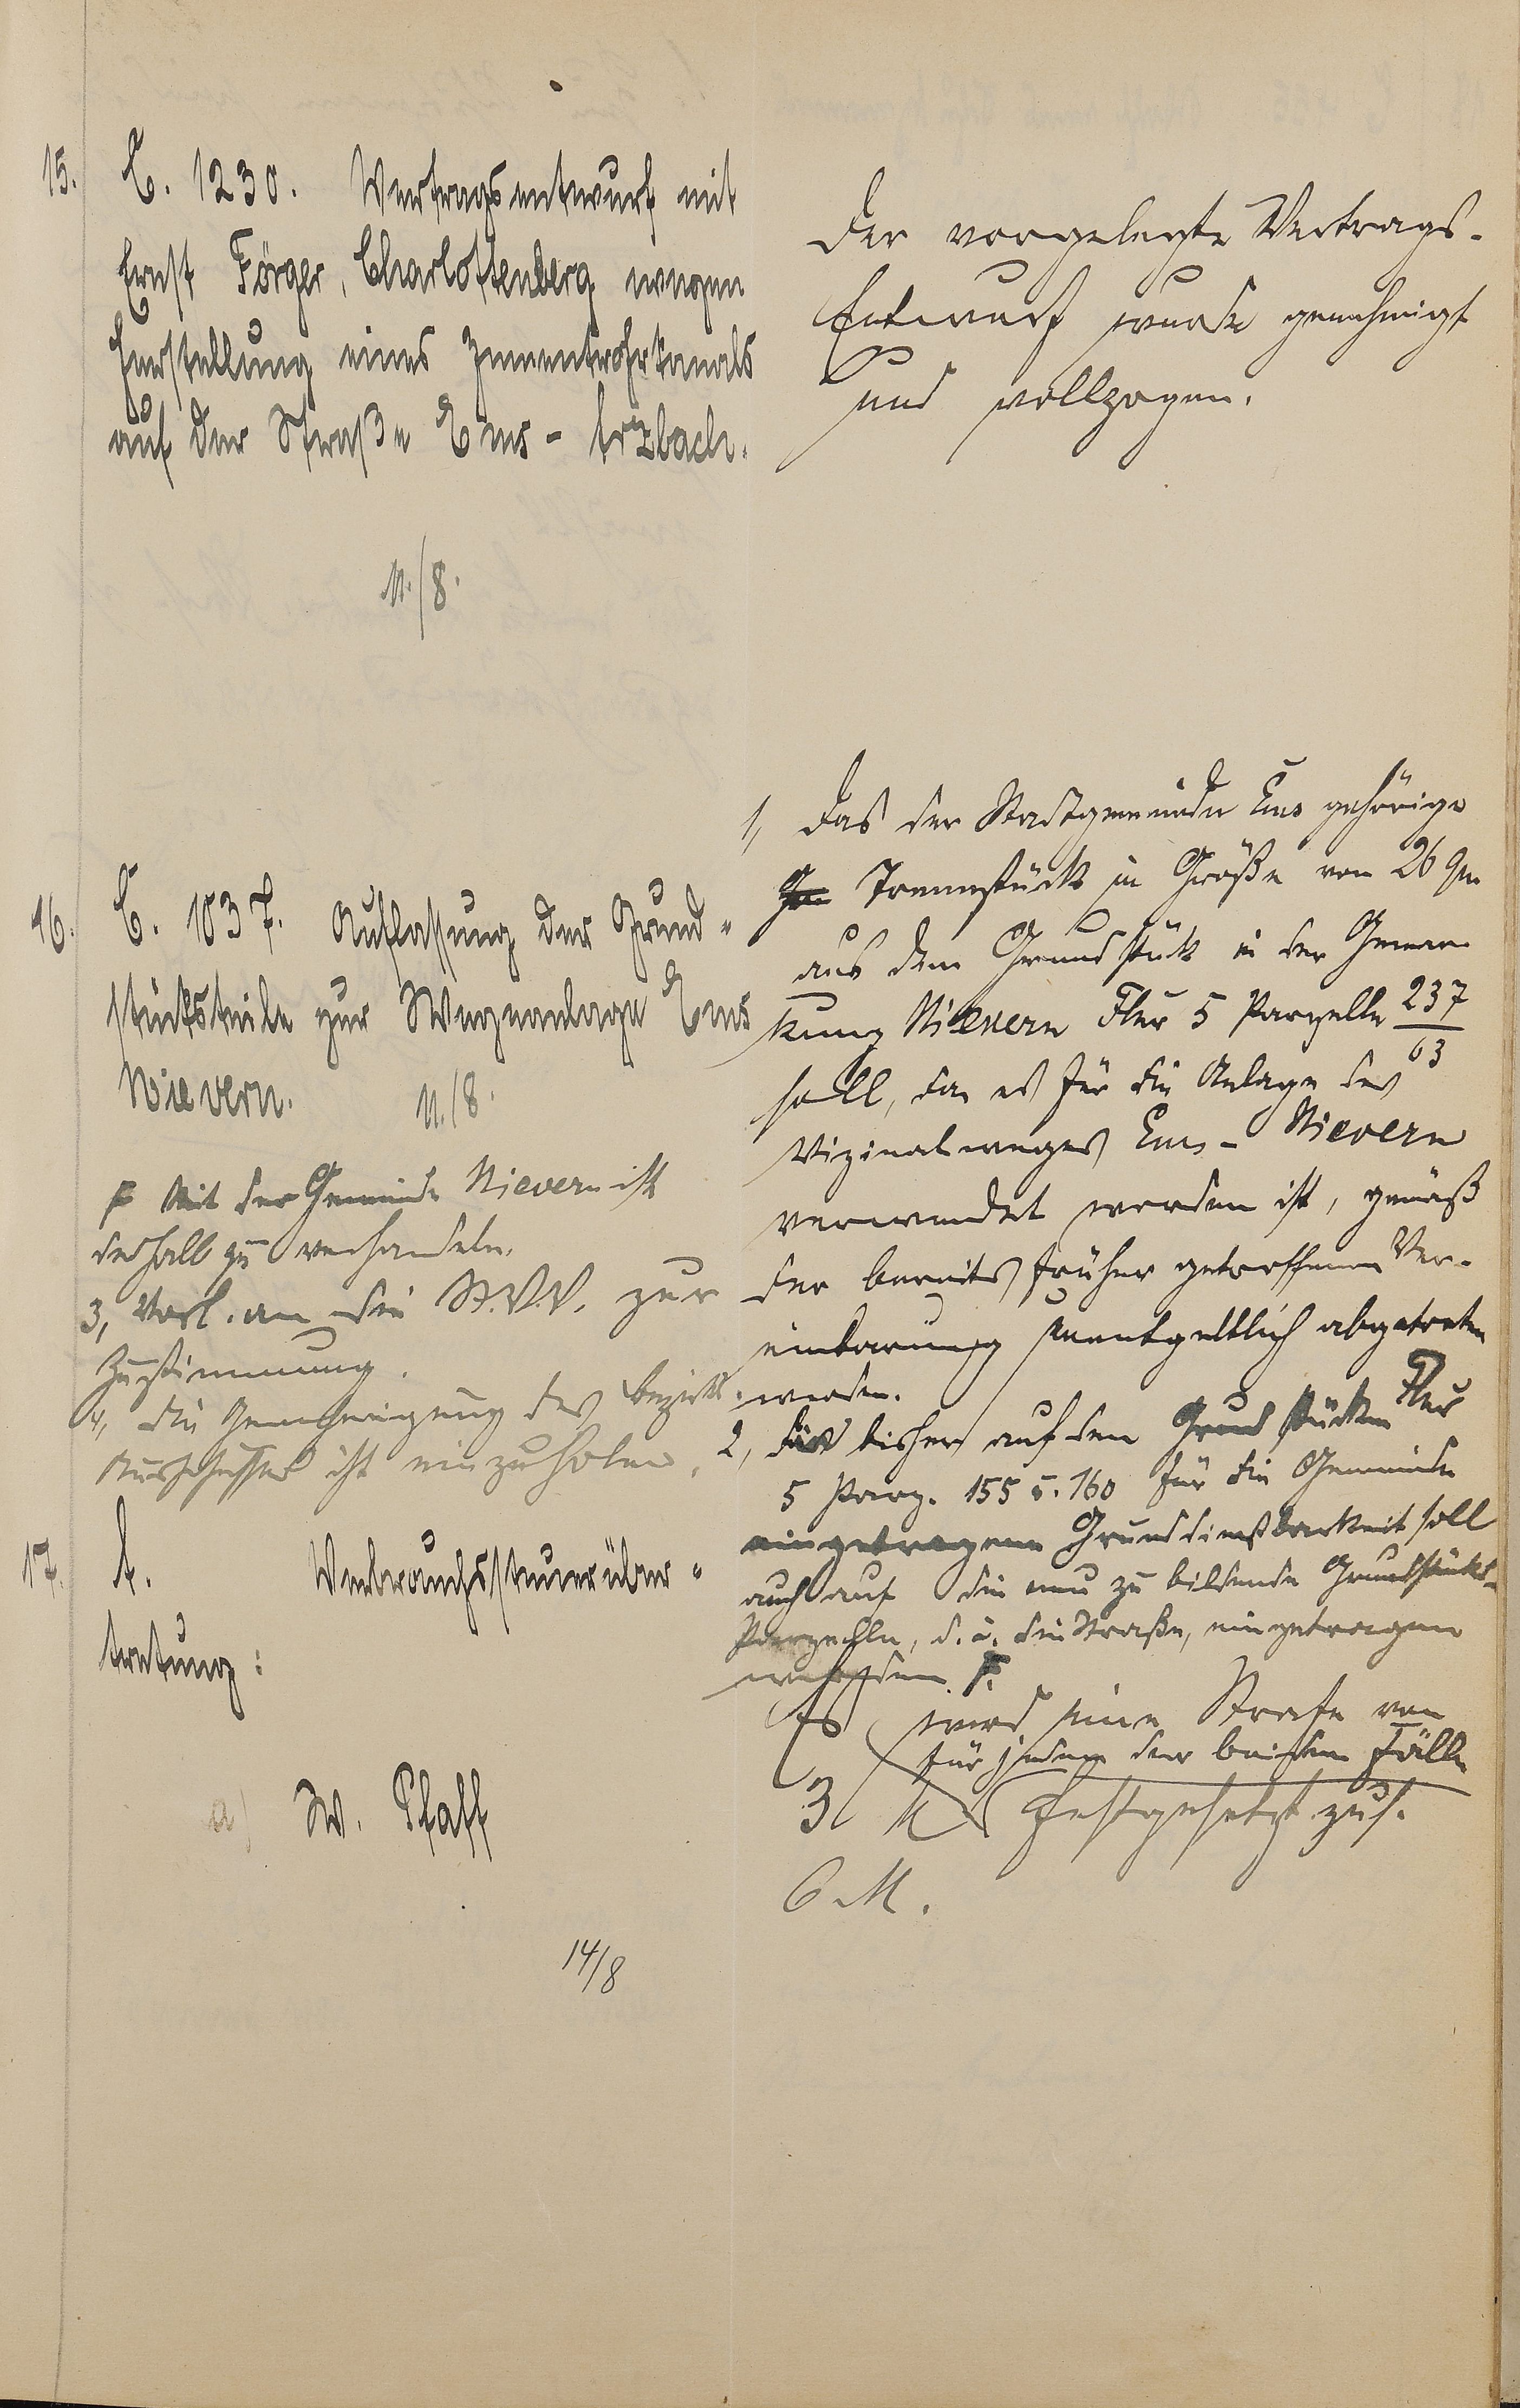 15. C. 1230. Vertragsentwurf mit
Ernst Förger, Charlottenberg wegen
Herstellung eines Zementrohrkanals
auf der Straße Ems - Arzbach.
11./8.
Der vorgelegte Vertrags-
Entwurf wurde genehmigt
und vollzogen.
16. C. 1037. Auflassung der Grund-
stücksteile zur Wegeanlage Ems
Nievern.
11./8.
1, Das der Stadtgemeinde Ems gehörige
Trennstück in Größe von 26 qm
aus dem Grundstück in der Gemar-
kung Nievern Flur 5 Parzelle 237/63
soll, da es für die Anlage des
Vizinalweges Ems - Nievern
verwendet worden ist, gemäß
der bereits früher getroffenen Ver-
einbarung unentgeltlich abgetreten
werden.
2, Die bisher auf den Grundstücken Flur
5 Parz. 155 u. 160 für die Gemeinde
eingetragene Grunddienstbarkeit soll
auch auf die neu zu bildende Grundstücks-
Parzelle, d. i. die Straße, eingetragen
werden. F.
F Mit der Gemeinde Nievern ist
deshalb zu verhandeln.
3, Vorl. an die St.V.V. zur
Zustimmung.
4, Die Genehmigung des Bezirks-
Ausschusses ist einzuholen.
17. A. Verbrauchssteuerüber-
tretung:
a) W. Pfaff
14/8
Es wird eine Strafe von
für jeden der beiden Fälle
3 M festgesetzt zus.
6 M.